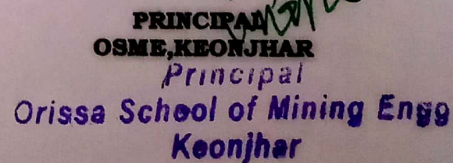 PRINCIPAL
OSME,KEONJHAR
Principal
Orissa School of Mining Engg
Keonjhar